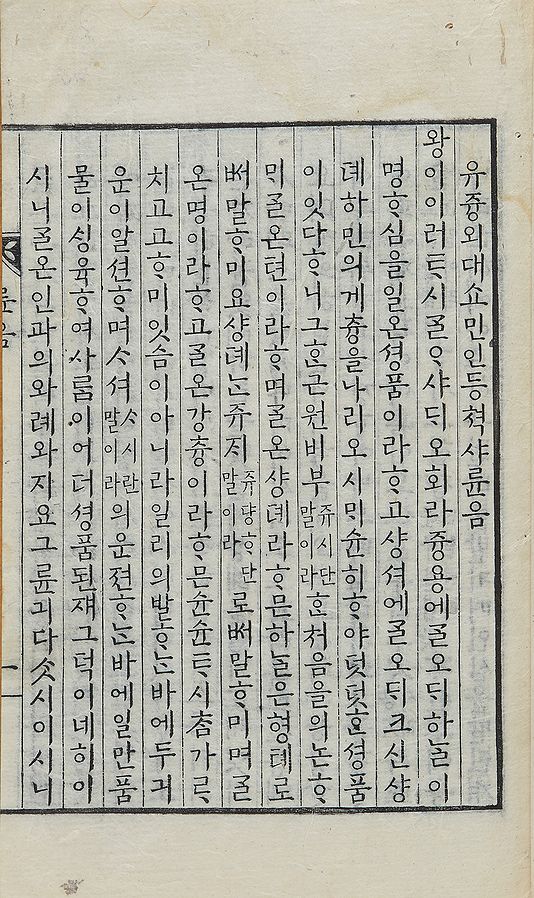 유즁외대쇼민인등쳑샤륜음
왕이이러ᄐᆞ시ᄀᆞᆯᄋᆞ샤ᄃᆡ오회라즁용에ᄀᆞᆯ오ᄃᆡ하ᄂᆞᆯ이
명ᄒᆞ심을일온셩품이라ᄒᆞ고샹셔에ᄀᆞᆯ오ᄃᆡ크신샹
뎨하민의게츙을나리오시ᄆᆡ슌히ᄒᆞ야덧덧ᄒᆞᆫ셩품
이잇다ᄒᆞ니그ᄒᆞᆫ근원비부쥬시단말이라ᄒᆞᆫ처음을의논ᄒᆞ
ᄆᆡᄀᆞᆯ온텬이라ᄒᆞ며ᄀᆞᆯ온샹뎨라ᄒᆞ믄하ᄂᆞᆯ은형톄로
ᄡᅥ말ᄒᆞ미요샹뎨ᄂᆞᆫ쥬ᄌᆡ쥬댱ᄒᆞ단말이라로ᄡᅥ말ᄒᆞ미며ᄀᆞᆯ
온명이라ᄒᆞ고ᄀᆞᆯ온강츙이라ᄒᆞ믄슌슌ᄐᆞ시ᄎᆞᆷ가ᄅᆞ
치고고ᄒᆞ미잇슴이아니라일리의발ᄒᆞᄂᆞᆫ바에두긔
운이알션ᄒᆞ며ᄉᆞ셔ᄉᆞ시란말이라의운젼ᄒᆞᄂᆞᆫ바에일만품
물이ᄉᆡᆼ육ᄒᆞ여사ᄅᆞᆷ이어더셩품된쟤그덕이네히이
시니ᄀᆞᆯ온인과의와례와지요그륜긔다ᄉᆞᆺ시이시니
륜음
一